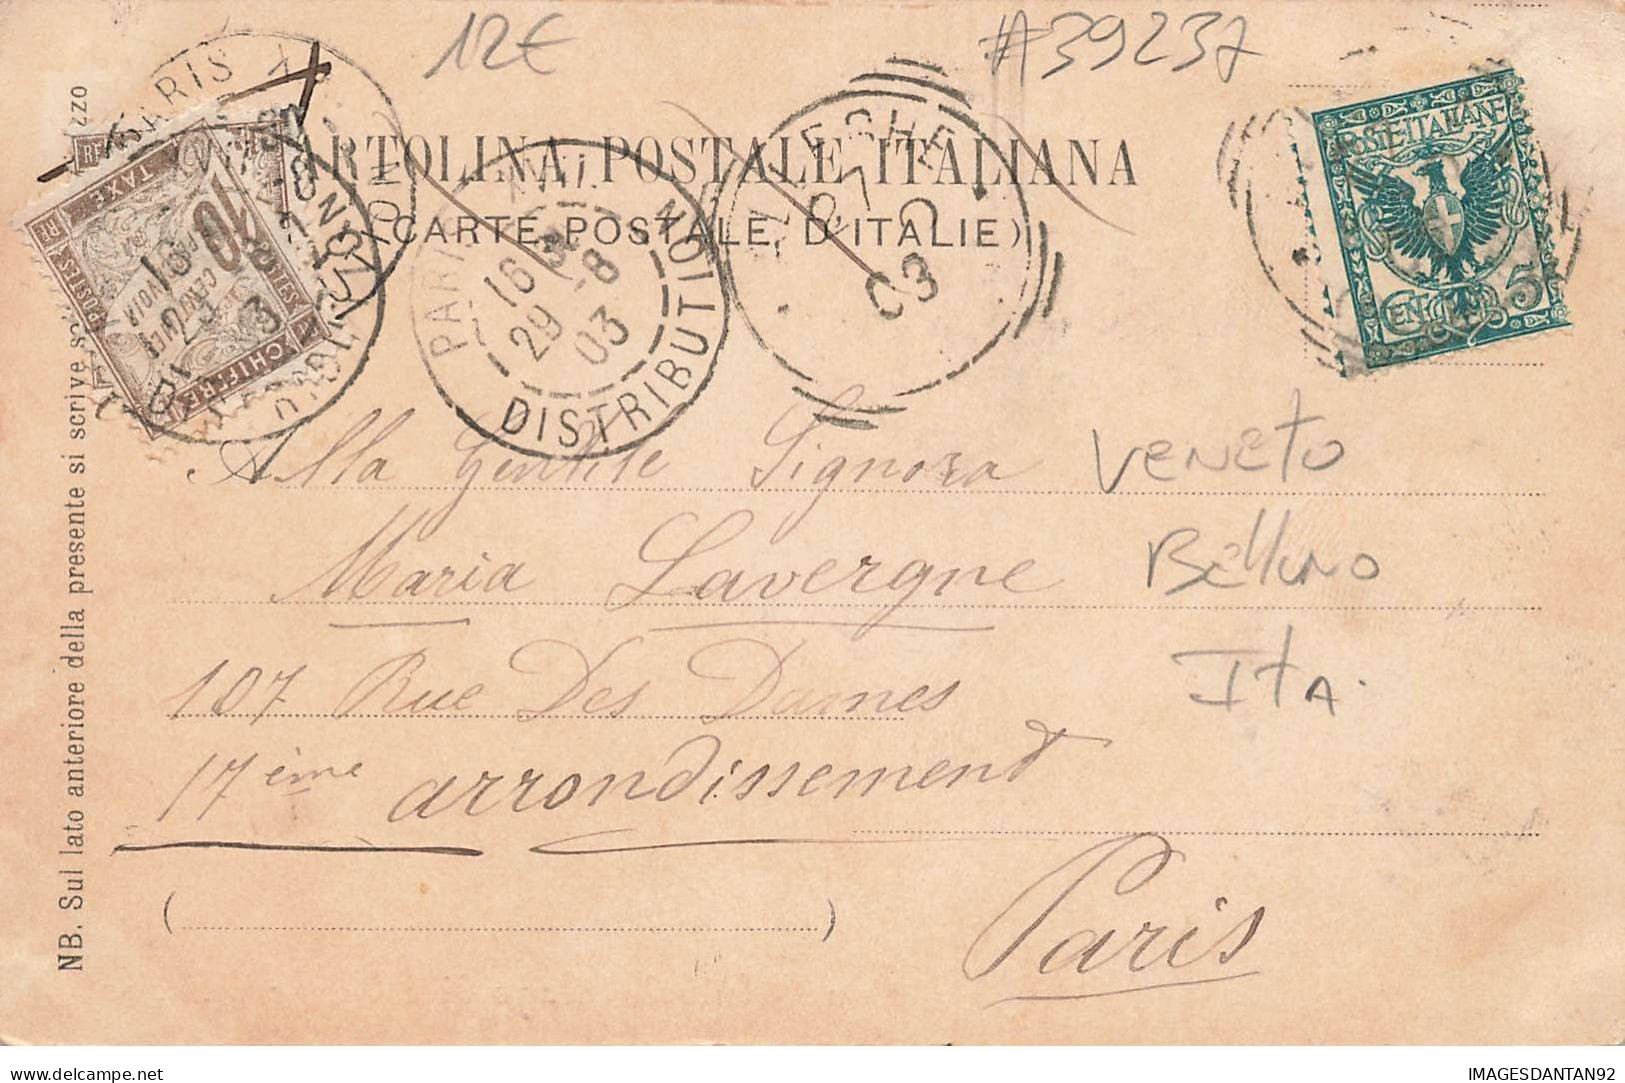 12€
#39237
CARTOLINA POSTALE ITALIANA
(CARTE POSTALE D'ITALIE)
POSTE ITALIANE
CENT. 5
TAXE
10
CENTIMES
CHIFFRE
POSTES
RF
PARIS XVII
16
29 -8
03
DISTRIBUTION
03
Alla Gentile Signora
Maria Lavergne
107 Rue Des Dames
17ème arrondissement
Paris
Veneto
Belluno
Ita.
NB. Sul lato anteriore della presente si scrive
IMAGESDANTAN92